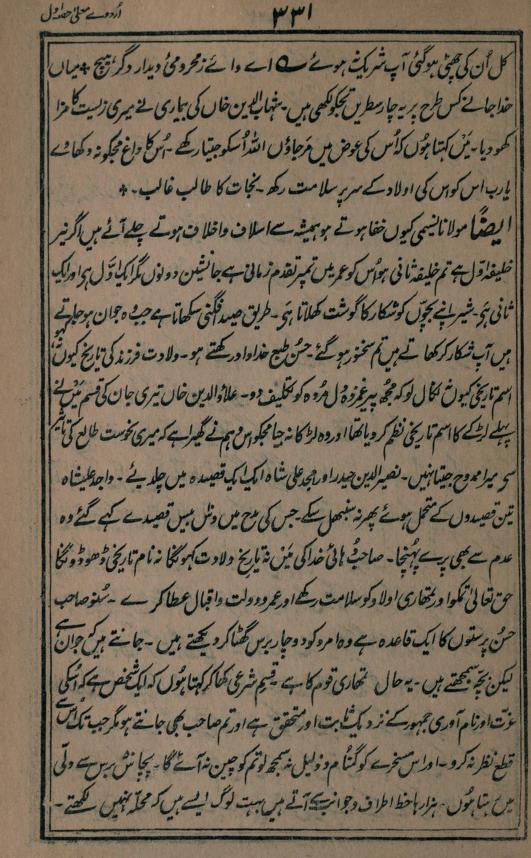 ۳۳۱
اُردوے معلیٰ حصہ اول
کل اُن کی چھٹی ہو گئی آپ شریک ہوئے اے وائے ز محرومیِ دیدار دگر ہیچ میاں
خدا جانے کس طرح پر یہ چار سطریں تجکو لکھی ہیں۔ شہاب الدین خاں کی بیماری نے میری زیست کا مزا
کھو دیا۔ میں کہتا ہوں کہ اُس کی عوض میں مر جاؤں اللہ اُسکو جیتا رکھے۔ اُس کا داغ مجکو نہ دکھاوے
یارب اس کو اس کی اولاد کے سر پر سلامت رکھ۔ نجات کا طالب غالب۔
ایضاً مولانا نسیمی کیوں خفا ہوتے ہو ہمیشہ سے اسلاف و اخلاف ہوتے چلے آئے ہیں اگر نیر
خلیفہ اول ہے تم خلیفہ ثانی ہو اُس کو عمر میں تمپر تقدم زمانی ہے جانشین دونوں مگر ایک اول ہی اور ایک
ثانی ہی۔ شیر اپنے بچوں کو شکار کا گوشت کھلاتا ہی۔ طریق صید افگنی سکھاتا ہے جب وہ جوان ہو جاتے
ہیں آپ شکار کر کھاتے ہیں تم سخنور ہو گئے۔ حسن طبع خداداد رکھتے ہو۔ ولادت فرزند کی تاریخ کیوں نہ کہو
اسم تاریخی کیوں نہ نکال لو کہ مجھ پیر غمزدہ دل مردہ کو تکلیف دو۔ علاؤالدین خاں تیری جان کی قسم میں نے
پہلے لڑکے کا اسم تاریخی نظم کر دیا تھا اور وہ لڑکا نہ جیا مجکو اس وہم نے گھیرا ہے کہ میری نحوست طالع کی تاثیر
سی میرا ممدوح جیتا نہیں۔ نصیر الدین حیدر اور امجد علی شاہ ایک ایک قصیدہ میں چلدیے۔ واجد علیشاہ
تین قصیدوں کے متحمل ہوئے پھر نہ سنبھل سکے۔ جس کی مدح میں دس بیس قصیدے کہے گئے وہ
عدم سے بھی پرے پہنچا۔ صاحب دُہائی خدا کی میں نہ تاریخ ولادت کہونگا نہ نام تاریخی ڈھونڈونگا
حق تعالیٰ تمکو اور تمھاری اولاد کو سلامت رکھے اور عمر و دولت و اقبال عطا کرے۔ سُنو صاحب
حسن پرستوں کا ایک قاعدہ ہے وہ امرد کو دو چار برس گھٹا کر دیکھتے ہیں۔ جانتے ہیں کہ جوان ہے
لیکن بچہ سمجھتے ہیں۔ یہ حال تمھاری قوم کا ہے۔ قسم شرعی کھا کر کہتا ہوں کہ ایک شخص ہے کہ اُسکی
عزت اور نام آوری جمہور کے نزدیک ثابت اور متحقق ہے اور تم صاحب بھی جانتے ہو مگر جب تک اُس سے
قطع نظر نہ کرو۔ اور اس مسخرے کو گمنام و ذلیل نہ سمجھ لو تم کو چین نہ آئے گا۔ پچاس برس سے دلی
میں رہتا ہوں۔ ہزارہا خط اطراف و جوانب سے آتے ہیں بہت لوگ ایسے ہیں کہ محلہ نہیں لکھتے۔